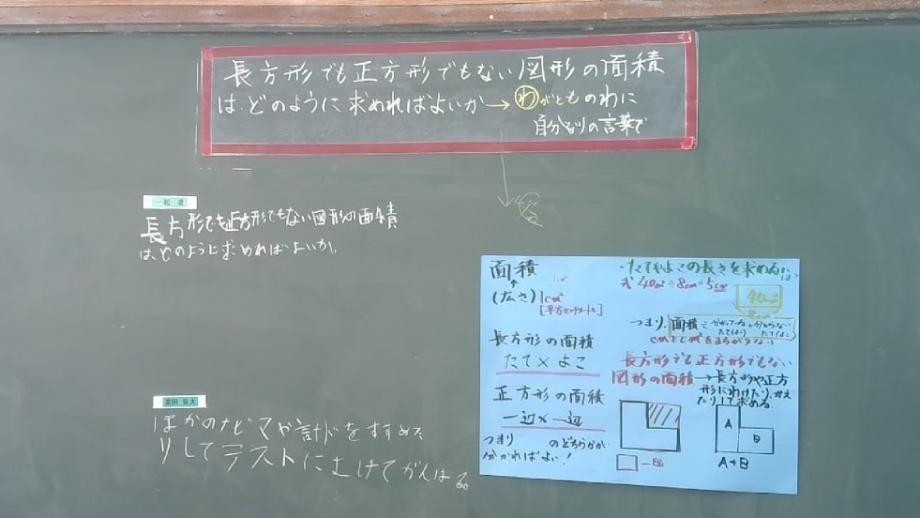 長方形でも正方形でもない図形の面積
は、どのように求めればよいか→わがとものわに
自分なりの言葉で
長方形でも正方形でもない図形の面積
は、どのように求めればよいか。
ほかのナビマや計ドをすすめた
りしてテストにむけてがんばる。
面積
(広さ) 1cm²
[平方センチメートル]
長方形の面積
たて×よこ
正方形の面積
一辺×一辺
つまり のどちらかが
分かればよい!
・たてやよこの長さを求めるには
式 40cm²÷8cm=5cm
40cm²
8cm
つまり、面積÷
cmとcm²をまちがえない
長方形でも正方形でもない
図形の面積→長方形や正方
形にわけたり、
たりして求める
A
B
A+B